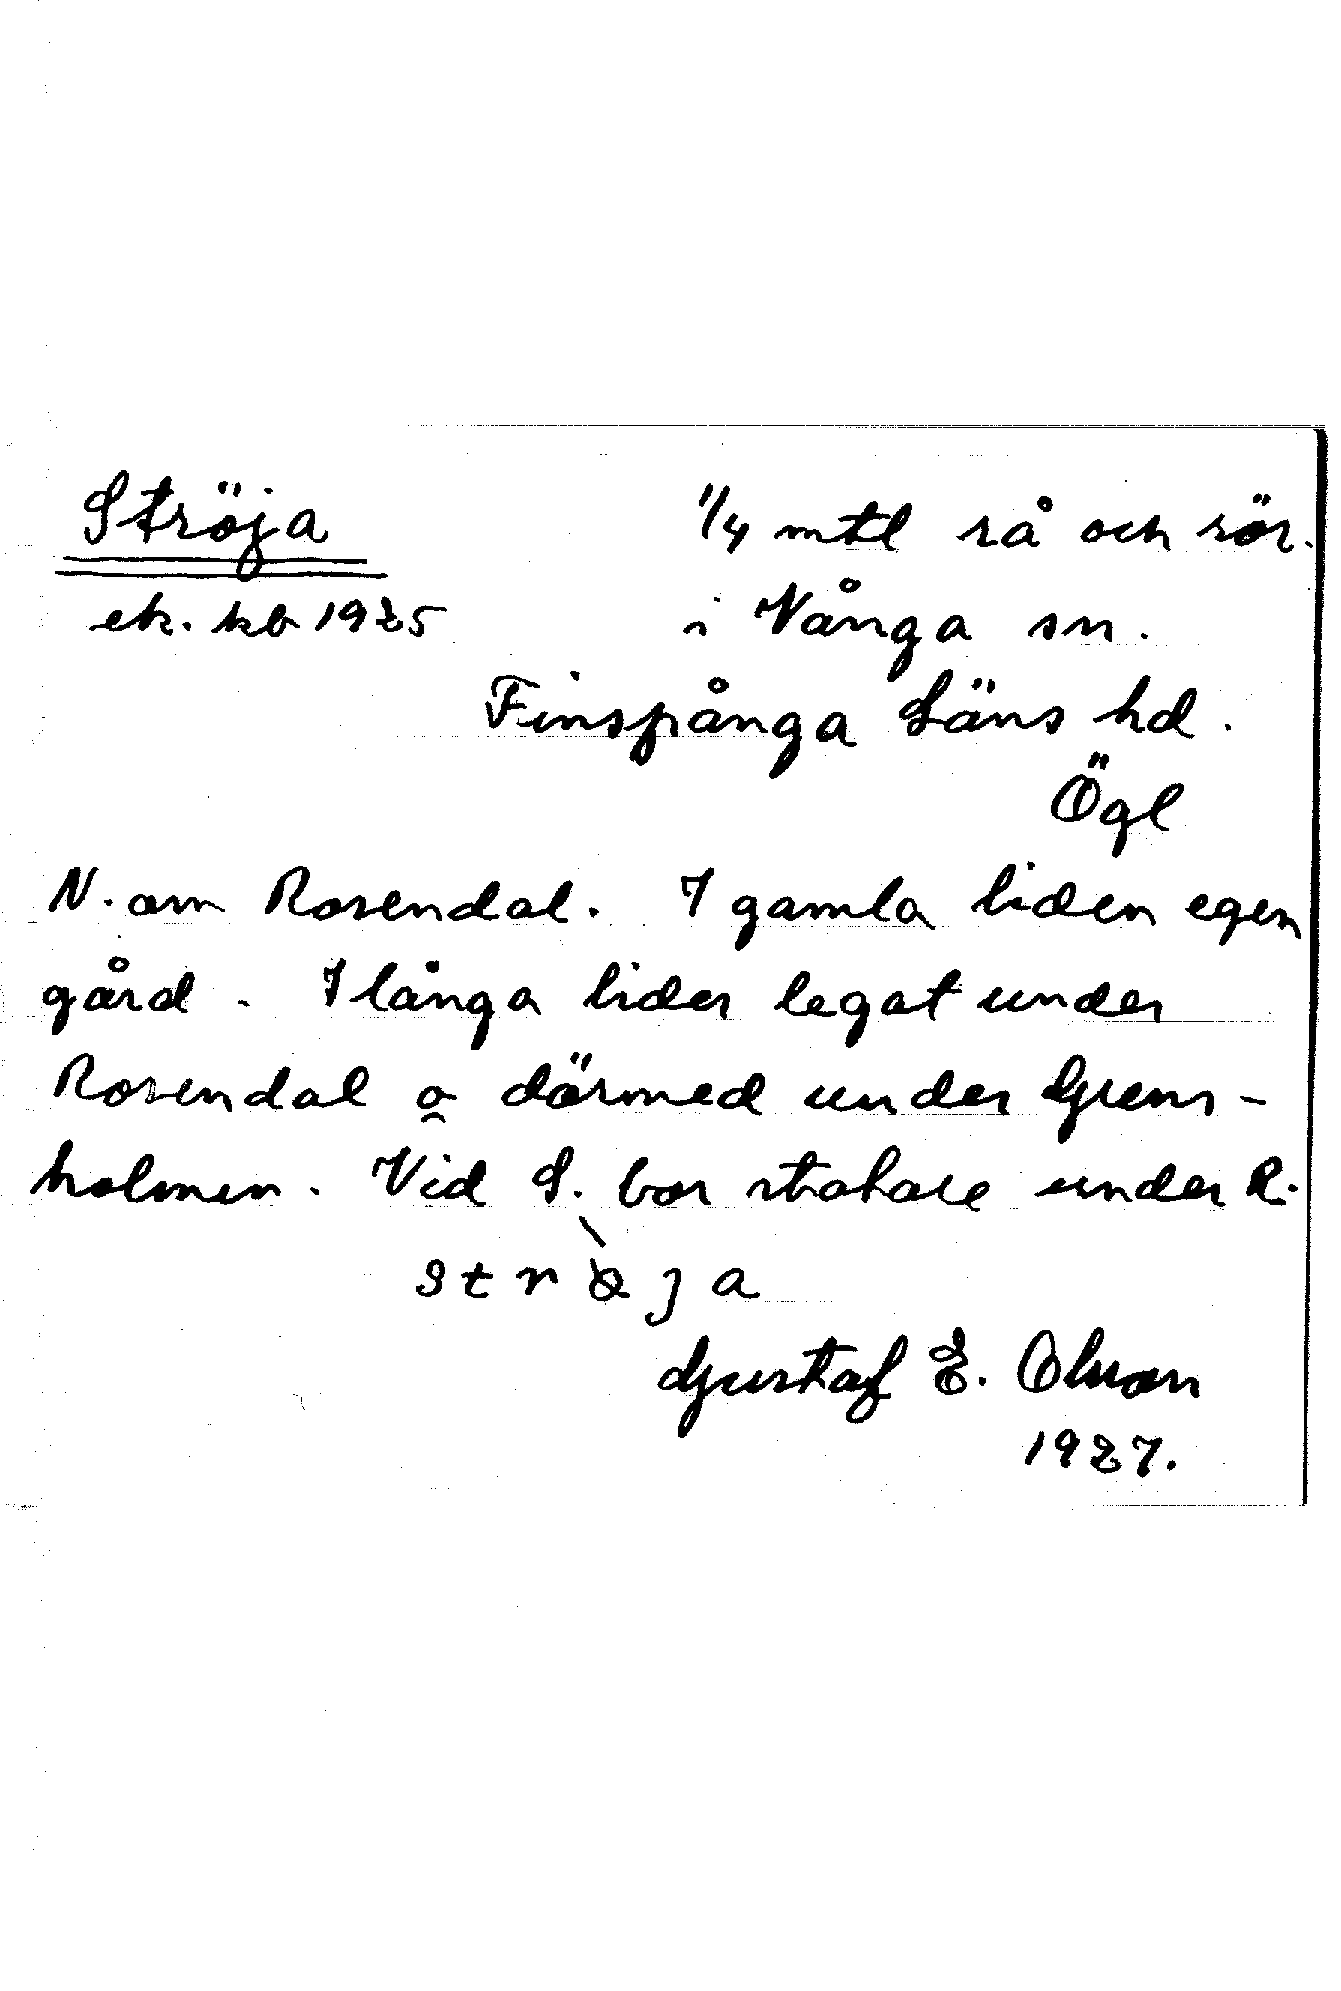 Ströja 1/4 mtl rå och rör.
ek. kb 1925 i Vånga sn.
Finspånga Läns hd.
Ögl
N. om Rosendal. I gamla tiden egen
gård. I långa tider legat under
Rosendal o därmed under Grens-
holmen. Vid S. bor statare under R.
strö̀ja
Gustaf E. Olson
1927.